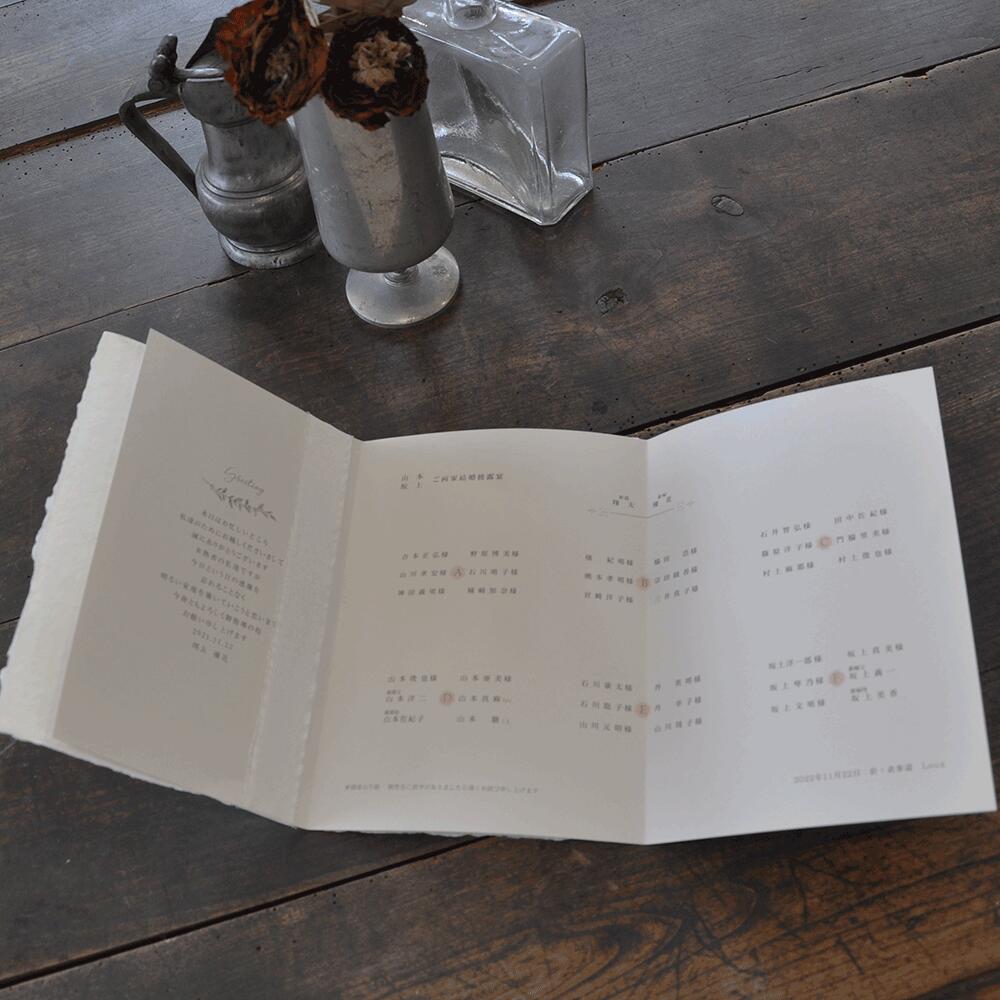 Greeting
本日はお忙しいところ
私達のためにお越しくださいまして
誠にありがとうございます
未熟者の私達ですが
今日という日の感謝を
忘れることなく
明るい家庭を築いていこうと思います
今後ともよろしく御指導の程
お願い申し上げます
山本
坂上
ご両家結婚披露宴
新郎
新婦
吉本正弘様
野原博美様
山川孝宏様
A
石川明子様
神田義明様
城崎知奈様
紀明様
橋本孝明様
B
宮崎洋子様
三井真子様
石井智弘様
田中佐紀様
篠原洋子様
C
門脇里美様
村上麻那様
村上俊也様
山本俊也様
山本亜美様
山本洋二
D
山本真麻
山本佐紀子
山本
石川康太様
石川聡子様
E
井 幸子様
山川元昭様
山川陽子様
坂上洋一郎様
坂上真美様
坂上琴乃様
F
坂上義一
坂上文明様
坂上美香
2022年11月22日 於・表参道